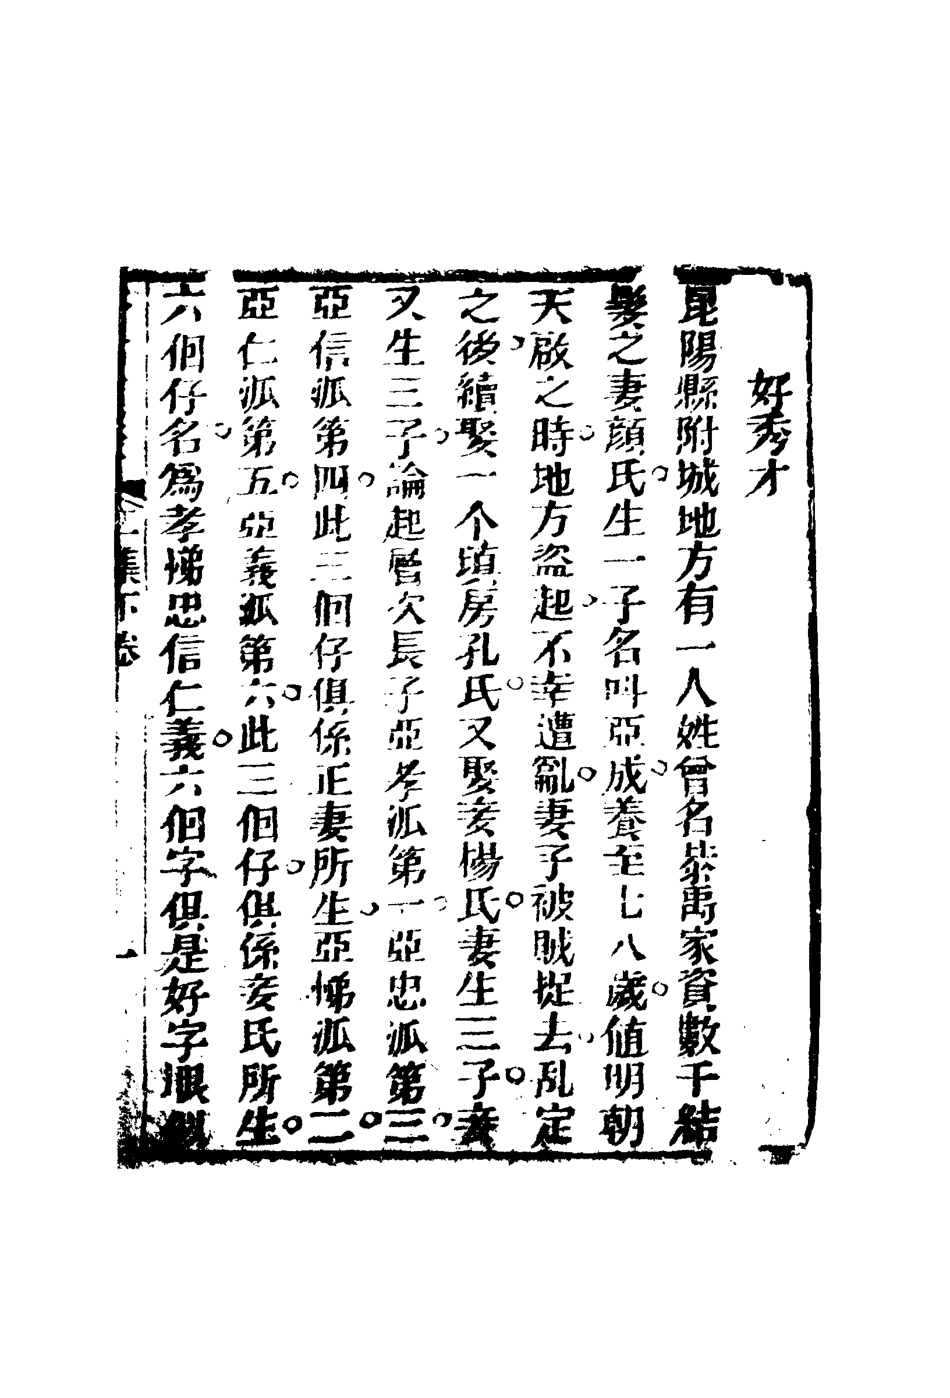 好秀才
昆陽縣附城地方有一人姓曾名恭禹家資數千結
髮之妻顔氏生一子名叫亞成養至七八歲値明朝
天啟之時地方盜起不幸遭亂妻子被賊捉去乱定
之後續娶一个塡房孔氏又娶妾楊氏妻生三子妾
又生三子論起層次長子亞孝派第一亞忠派第三
亞信派第四此三個仔俱係正妻所生亞悌派第二
亞仁派第五亞義派第六此三個仔俱係妾氏所生
六個仔名爲孝悌忠信仁義六個字俱是好字眼
二集下卷
一